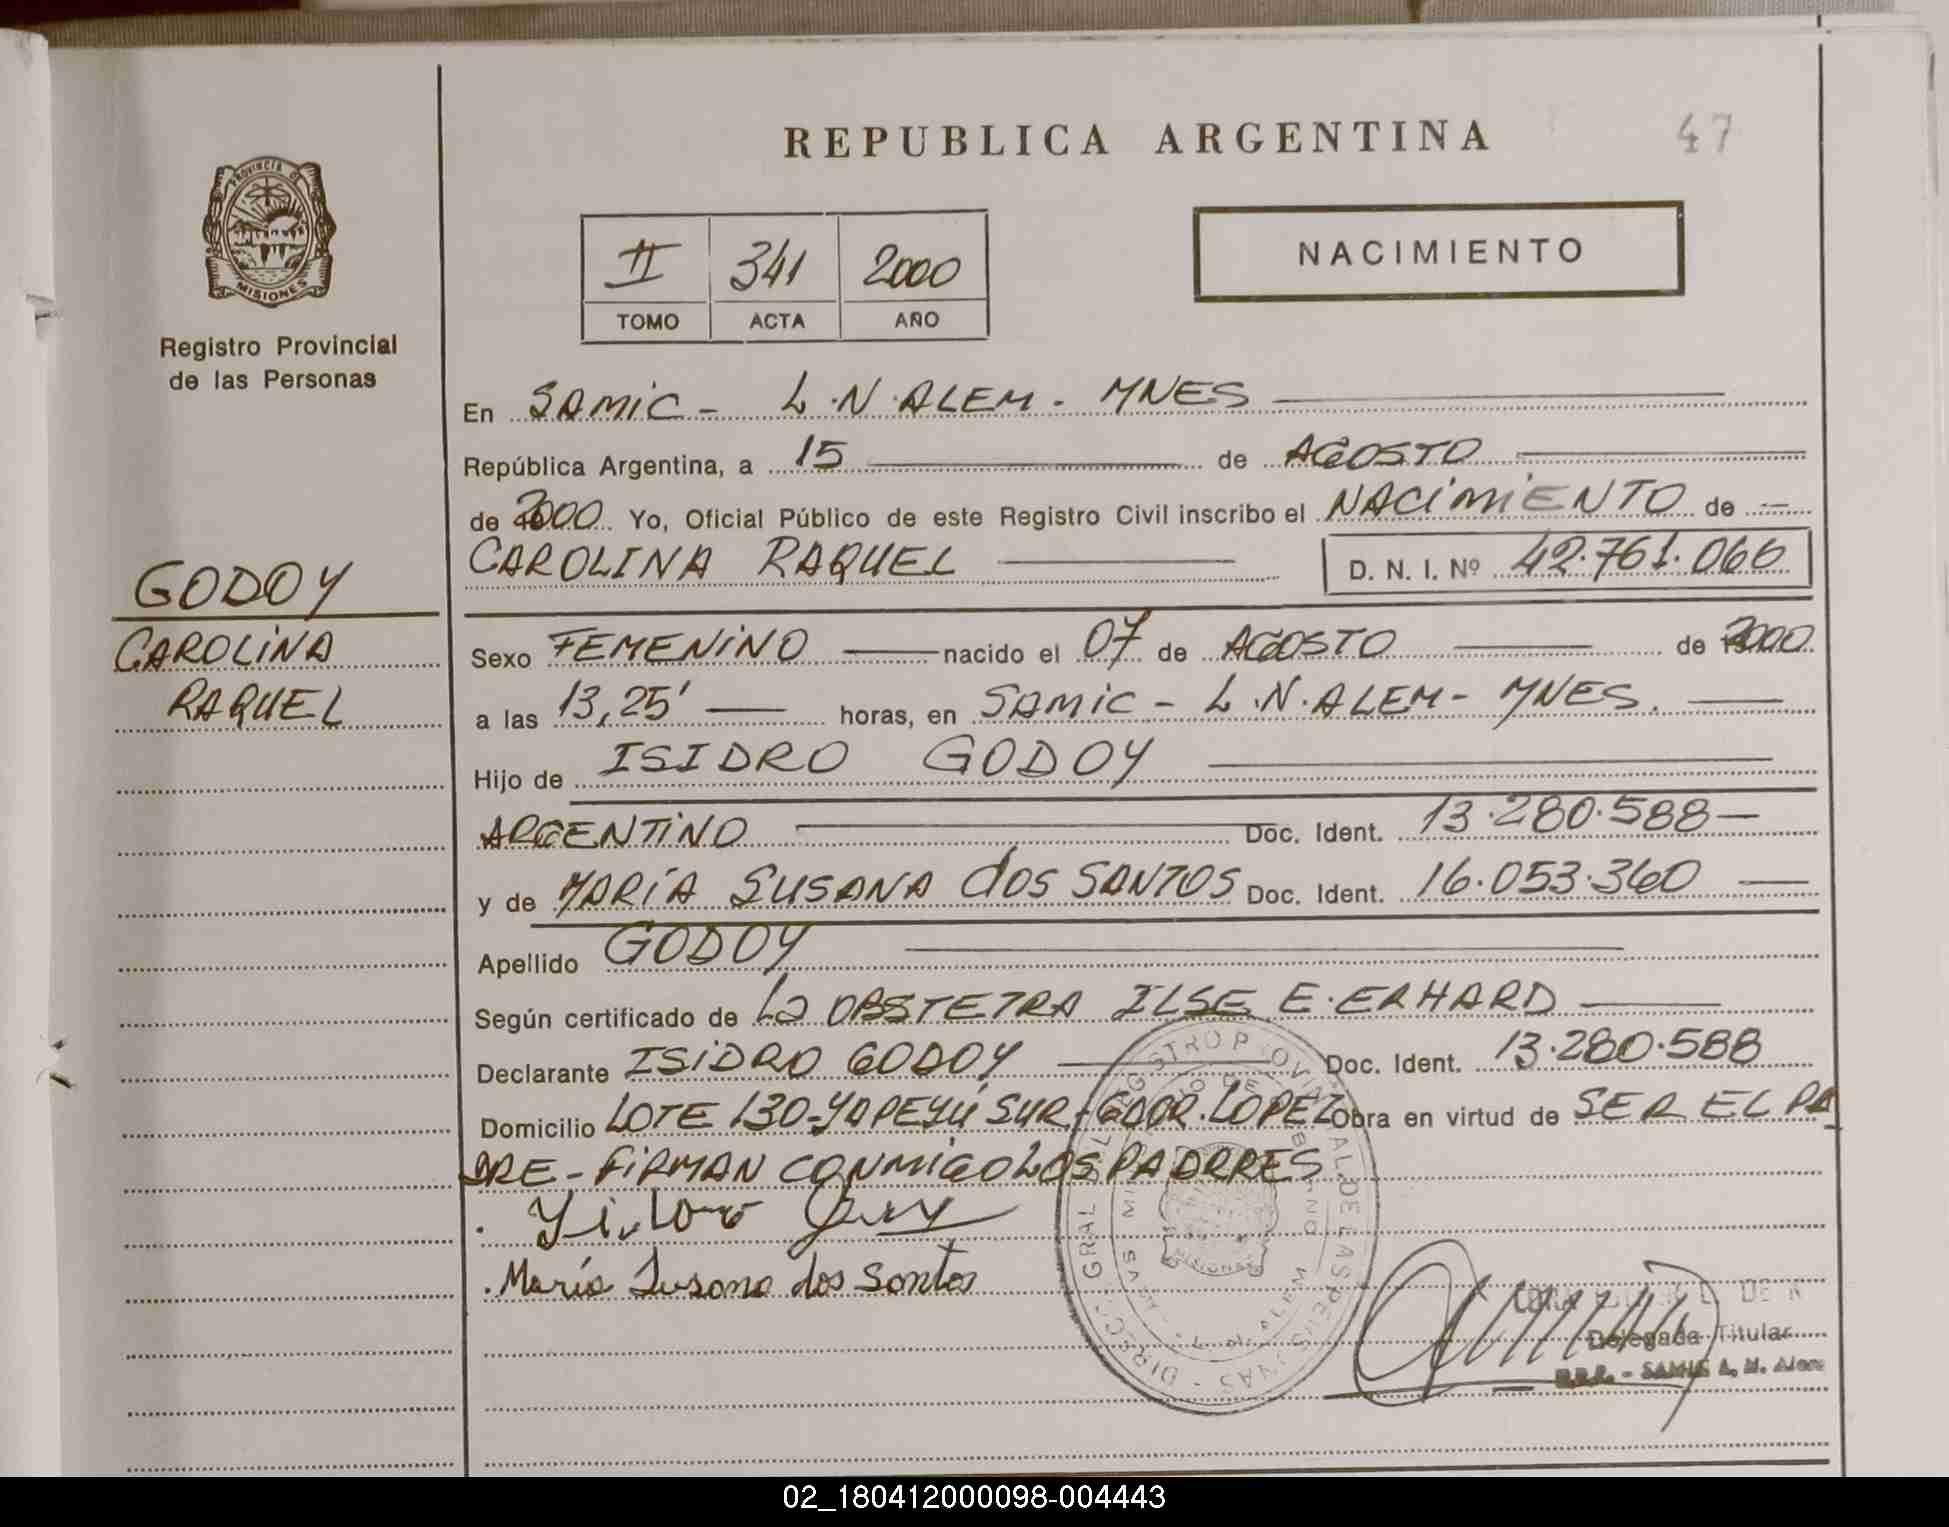 REPUBLICA ARGENTINA
47
PROVINCIA DE
MISIONES
Registro Provincial
de las Personas
II 341 2000
TOMO ACTA AÑO
NACIMIENTO
En SAMIC - L.N.ALEM - MNES
República Argentina, a 15 de AGOSTO
de 2000 Yo, Oficial Público de este Registro Civil inscribo el NACIMIENTO de -
CAROLINA RAQUEL D. N. I. Nº 42.761.066
GODOY
CAROLINA
RAQUEL
Sexo FEMENINO nacido el 07 de AGOSTO de 2000
a las 13,25' horas, en SAMIC - L.N.ALEM - MNES.
Hijo de ISIDRO GODOY
ARGENTINO Doc. Ident. 13.280.588
y de MARÍA SUSANA dOS SANTOS Doc. Ident. 16.053.360
Apellido GODOY
Según certificado de La OBSTETRA ILSE E. ERHARD
Declarante ISIDRO GODOY Doc. Ident. 13.280.588
Domicilio LOTE 130-YAPEYÚ SUR-GDOR.LOPEZ Obra en virtud de SER EL PA
DRE - FIRMAN CONMIGO LOS PADRRES
María Susana dos Santos
Delegada Titular
02_180412000098-004443